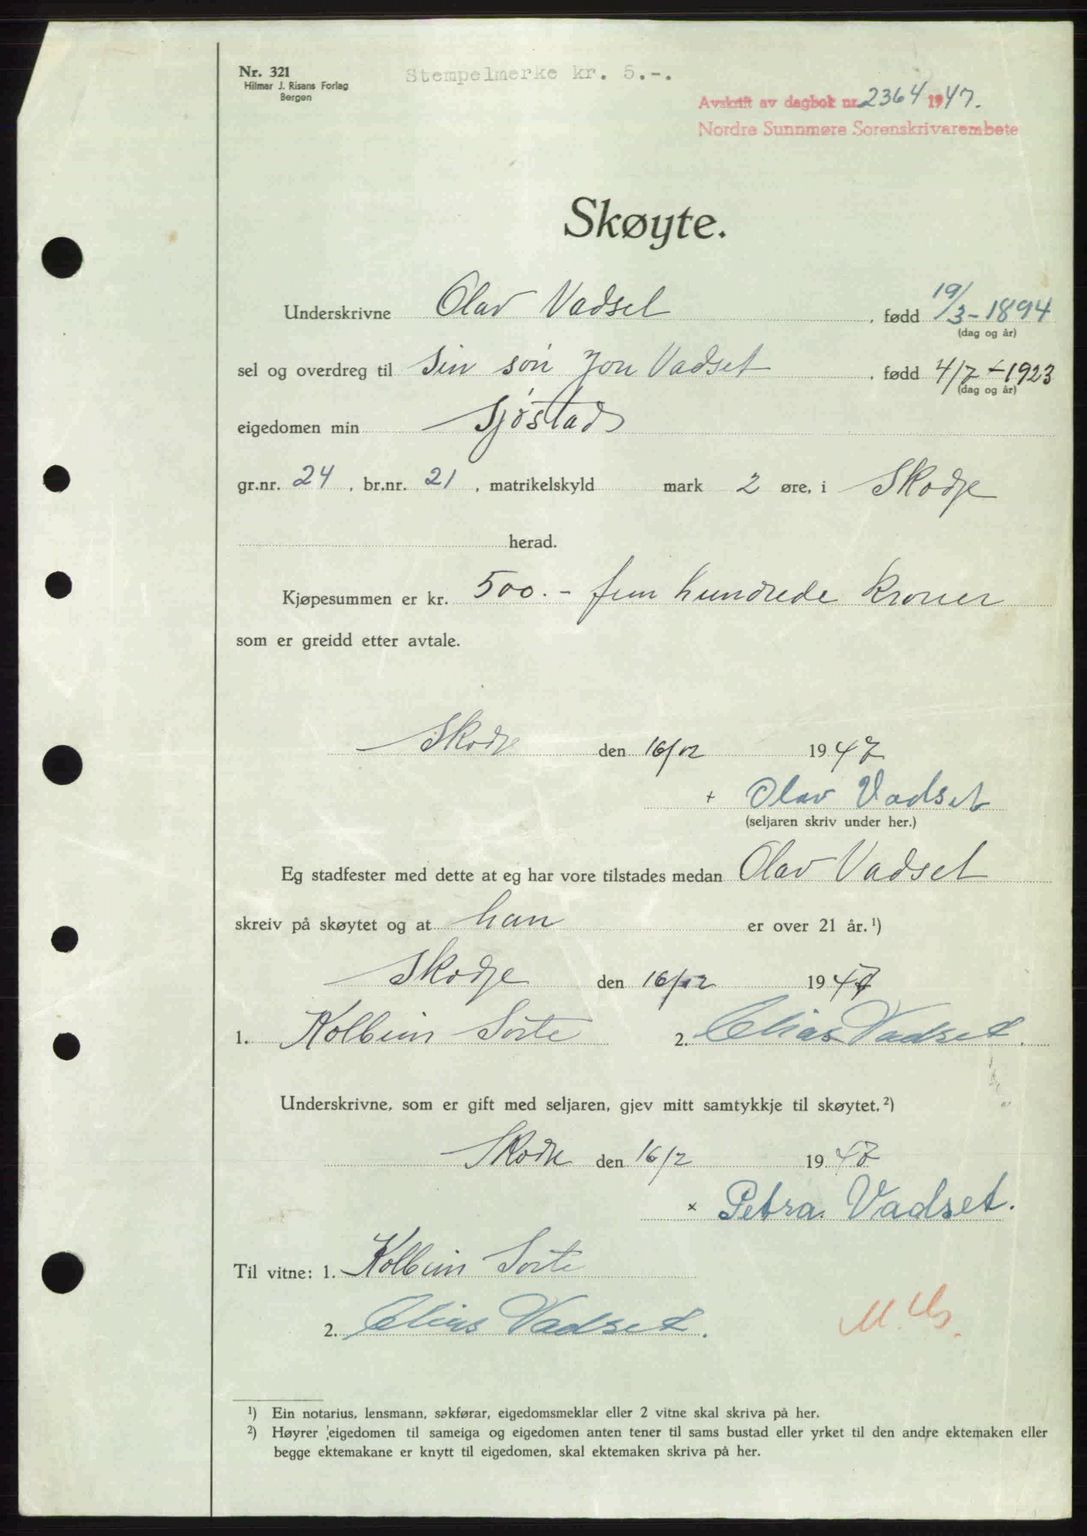 Nr. 321
Hilmar J. Risans Forlag
Bergen
Stempelmerke kr. 5.-.
Avskrift av dagbok nr. 2364 1947.
Nordre Sunnmøre Sorenskrivarembete
Skøyte.
Underskrivne Olav Vadset , fødd 19/3-1894
(dag og år)
sel og overdreg til sin søn Jon Vadset , fødd 4/7-1923
(dag og år)
eigedomen min Sjøstad
gr.nr. 24 , br.nr. 21 , matrikelskyld mark 2 øre, i Skodje
herad.
Kjøpesummen er kr. 500.- fem hundrede kroner
som er greidd etter avtale.
Skodje den 16/12 1947
+ Olav Vadset
(seljaren skriv under her.)
Eg stadfester med dette at eg har vore tilstades medan Olav Vadset
skreiv på skøytet og at han er over 21 år.¹)
Skodje den 16/12 1947
1. Kolbein Sorte 2. Elias Vadset.
Underskrivne, som er gift med seljaren, gjev mitt samtykkje til skøytet.²)
Skodje den 16/12 1947
× Petra Vadset.
Til vitne: 1. Kolbein Sorte
2. Elias Vadset.
¹) Ein notarius, lensmann, sakførar, eigedomsmeklar eller 2 vitne skal skriva på her.
²) Høyrer eigedomen til sameiga og eigedomen anten tener til sams bustad eller yrket til den andre ektemaken eller
begge ektemakane er knytt til eigedomen, skal ektemaken skriva på her.